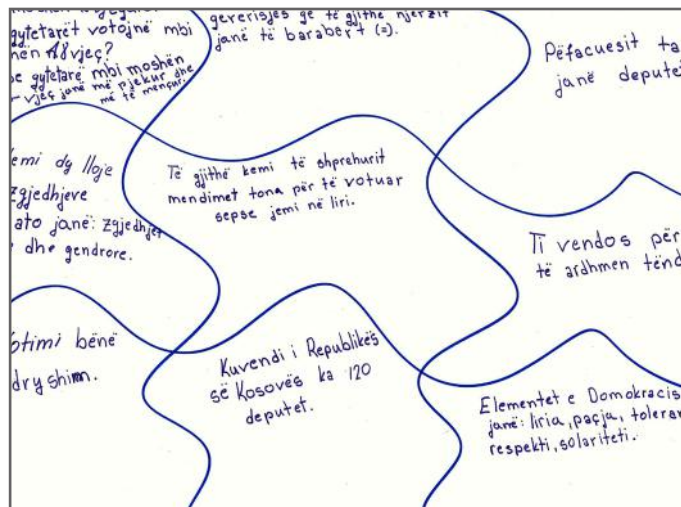 qytetarët votojnë mbi
18 vjeç?
qytetarë mbi moshën
vjeç janë më pjekur dhe
më të mençur
qeverisjes që të gjithë njerzit
janë të barabërt (=).
Pëfacuesit
janë
dy lloje
zgjedhjeve
ato janë: zgjedhjet
dhe qendrore.
Të gjithë kemi të shprehurit
mendimet tona për të votuar
sepse jemi në liri.
Ti vendos për
të ardhmen
bënë
Kuvendi i Republikës
së Kosovës ka 120
deputet.
Elementet e
janë: liria, paqja,
respekti, solariteti.